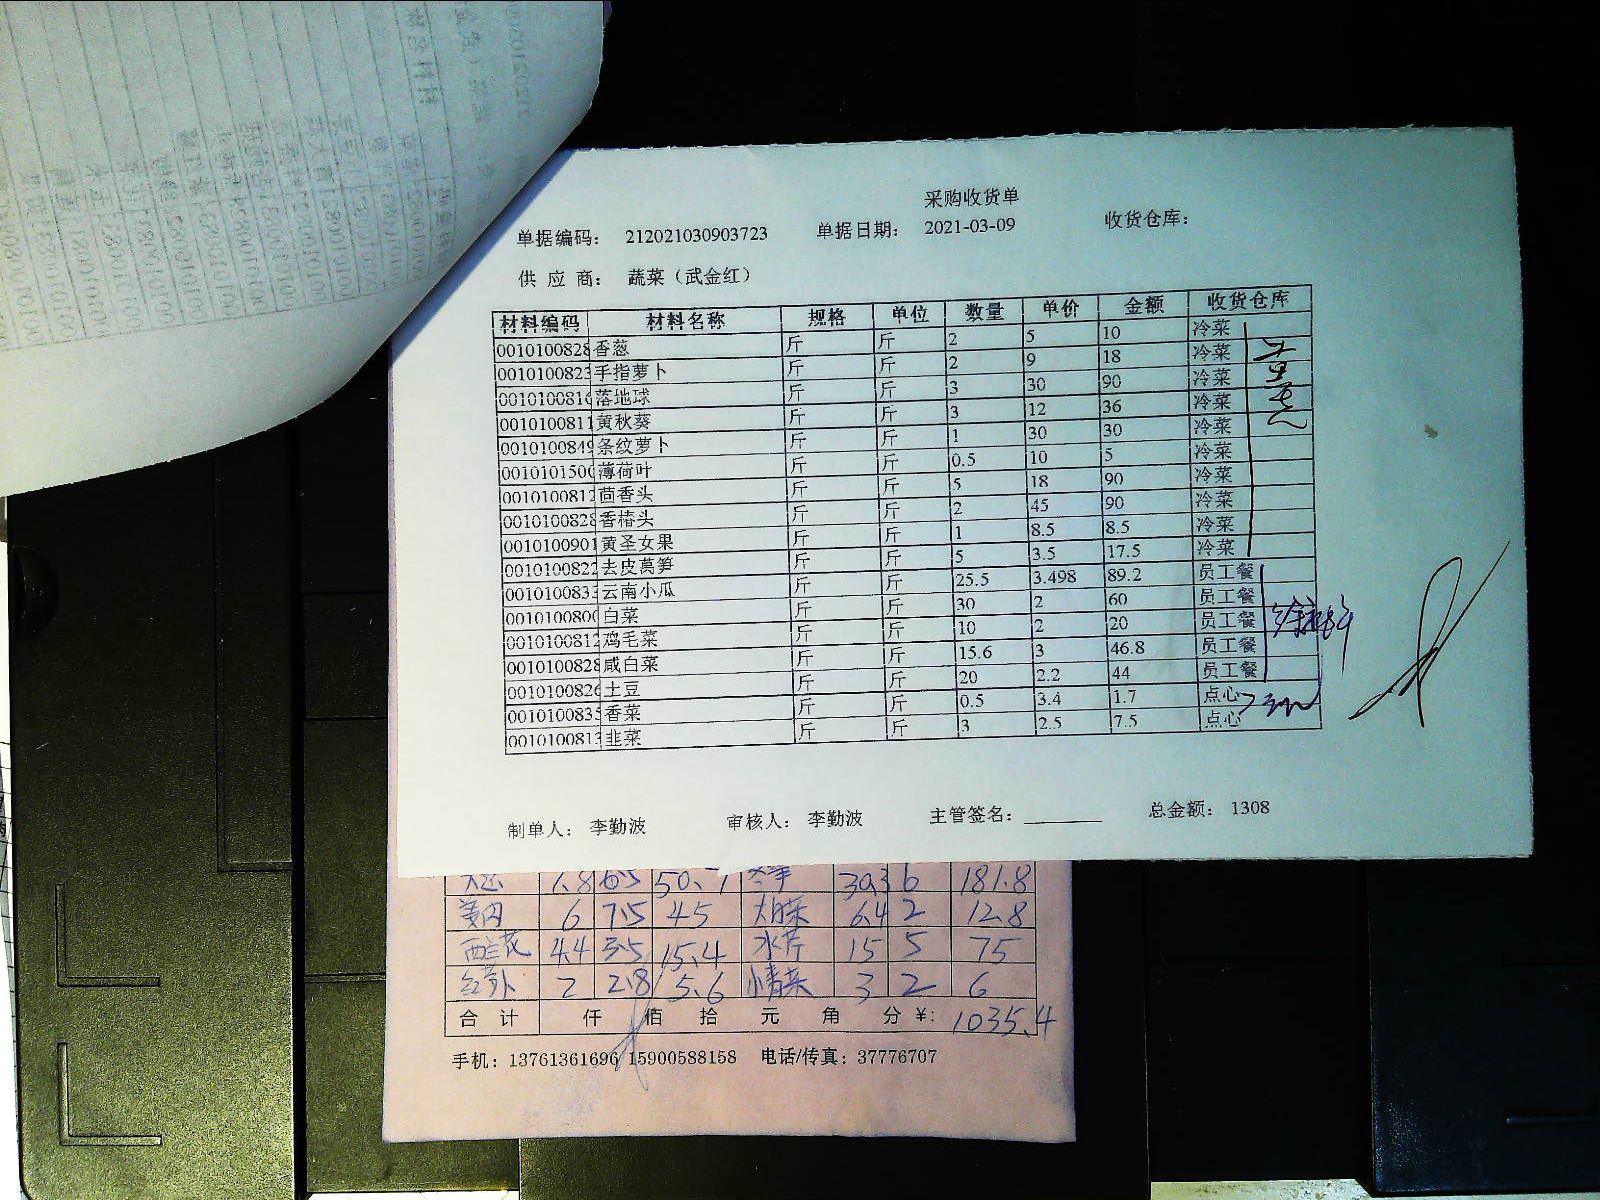 采购收货单
单据编码： 212021030903723 单据日期： 2021-03-09 收货仓库：
供 应 商： 蔬菜（武金红）
材料编码 材料名称 规格 单位 数量 单价 金额 收货仓库
0010100828 香葱 斤 斤 2 5 10 冷菜
0010100823 手指萝卜 斤 斤 2 9 18 冷菜
001010081 落地球 斤 斤 3 30 90 冷菜
001010081 黄秋葵 斤 斤 3 12 36 冷菜
001010084 条纹萝卜 斤 斤 1 30 30 冷菜
001010150 薄荷叶 斤 斤 0.5 10 5 冷菜
001010081 茴香头 斤 斤 5 18 90 冷菜
001010082 香椿头 斤 斤 2 45 90 冷菜
0010100901 黄圣女果 斤 斤 1 8.5 8.5 冷菜
0010100822 去皮莴笋 斤 斤 5 3.5 17.5 冷菜
001010083 云南小瓜 斤 斤 25.5 3.498 89.2 员工餐
001010080 白菜 斤 斤 30 2 60 员工餐
001010081 鸡毛菜 斤 斤 10 2 20 员工餐
001010082 咸白菜 斤 斤 15.6 3 46.8 员工餐
001010082 土豆 斤 斤 20 2.2 44 员工餐
001010083 香菜 斤 斤 0.5 3.4 1.7 点心
001010081 韭菜 斤 斤 3 2.5 7.5 点心
制单人： 李勤波 审核人： 李勤波 主管签名： 总金额： 1308
7.8 6.5 50.7 冬笋 30.3 6 181.8
姜肉 6 7.5 45 6.4 2 12.8
西兰花 4.4 3.5 15.4 水芹 15 5 75
红萝卜 2 2.8 5.6 3 2 6
合 计 仟 佰 拾 元 角 分 ¥： 1035.4
手机：13761361696 15900588158 电话/传真：37776707